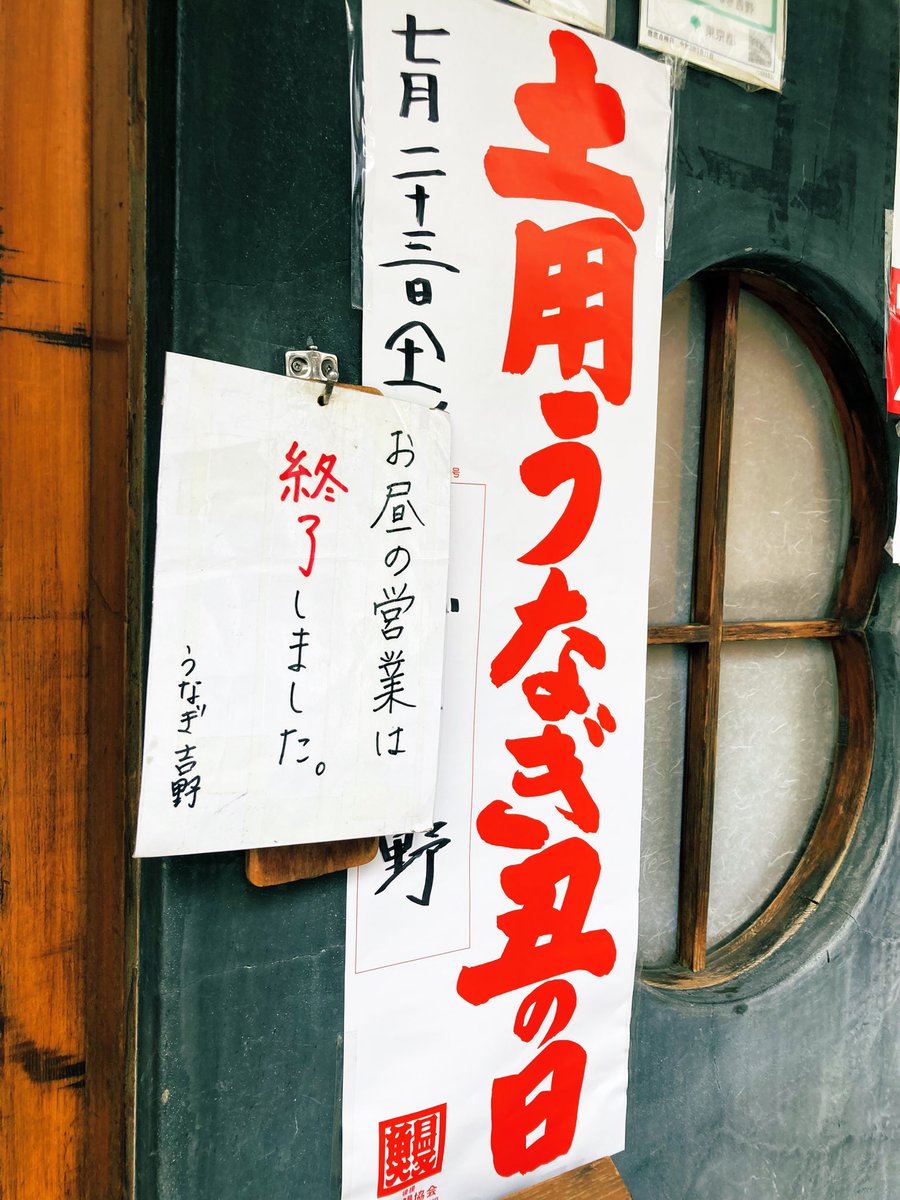 土用うなぎ丑の日
七月二十三日(土
号
野
お昼の営業は
終了しました。
うなぎ 吉野
協会